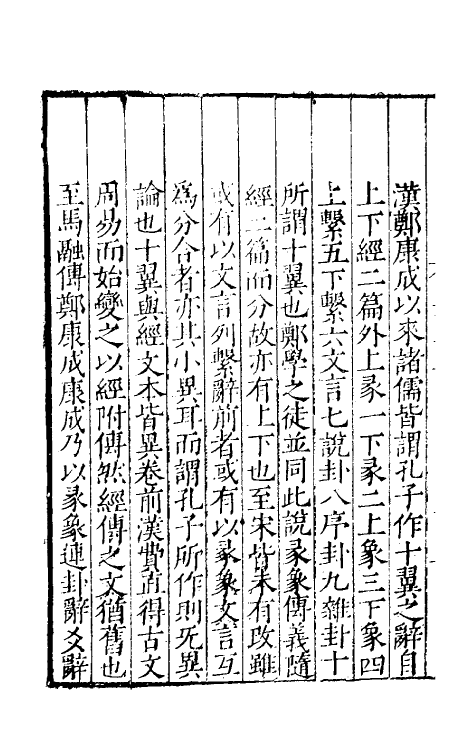 漢鄭康成以來諸儒皆謂孔子作十翼之辭自
上下經二篇外上彖一下彖二上象三下象四
上繫五下繫六文言七說卦八序卦九雜卦十
所謂十翼也鄭學之徒並同此說彖象傳義隨
經二篇而分故亦有上下也至宋皆未有改雖
或有以文言列繫辭前者或有以彖象文言互
爲分合者亦其小異耳而謂孔子所作則旡異
論也十翼與經文本皆異卷前漢費直得古文
周易而始變之以經附傳然經傳之文猶舊也
至馬融傳鄭康成康成乃以彖象連卦辭爻辭